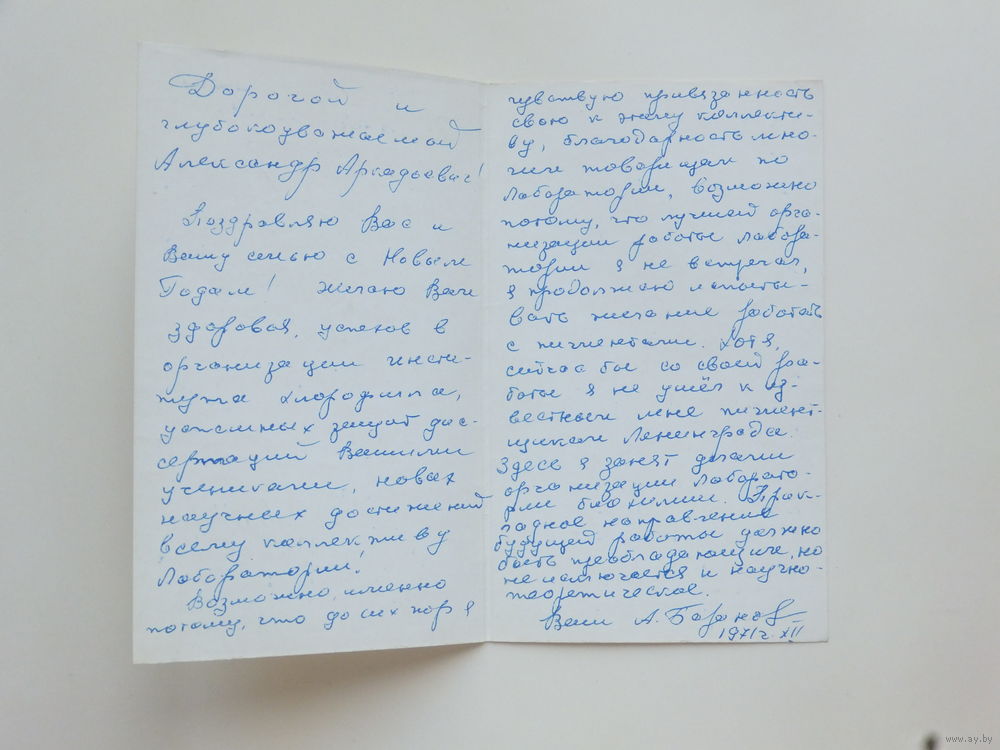 Дорогой и
глубокоуважаемый
Александр Аркадьевич!
Поздравляю Вас и
Вашу семью с Новым
Годом! Желаю Вам
здоровья, успехов в
организации инсти-
тута хлорофилла,
успешных защит дис-
сертаций Вашими
учениками, новых
научных достижений
всему коллективу
Лаборатории!
Возможно, именно
потому, что до сих пор я
чувствую привязанность
свою к этому коллекти-
ву, благодарность мно-
гим товарищам по
Лаборатории, возможно
потому, что лучшей орга-
низации работы лабора-
тории я не встречал,
я продолжаю испыты-
вать желание работать
с пигментами. Хотя,
сейчас бы со своей ра-
боты я не ушёл к из-
вестным мне пигмент-
щикам Ленинграда.
Здесь я занят делами
организации Лаборато-
рии биохимии. Прик-
ладное направление
будущей работы должно
быть преобладающим, но
не исключается и научно-
теоретическое.
Ваш А. Баранов
1971 г. XII
www.ay.by